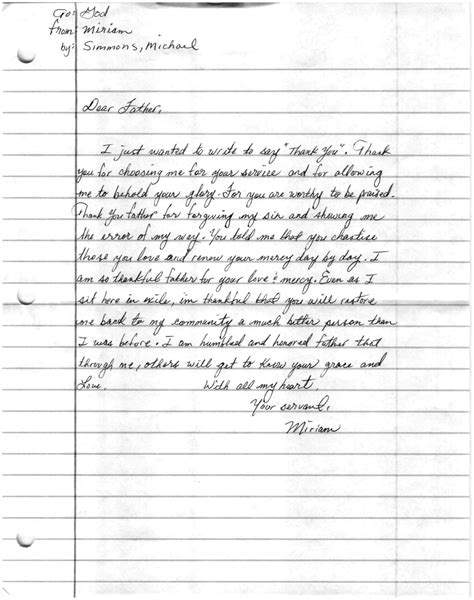 To: God
from: Miriam
by: Simmons, Michael
Dear Father,
I just wanted to write to say "Thank You". Thank
you for choosing me for your service and for allowing
me to behold your glory. For you are worthy to be praised.
Thank You father for forgiving my sin and showing me
the error of my way. You told me that you chastise
those you love and renew your mercy day by day. I
am so thankful father for your love & mercy. Even as I
sit here in exile, im thankful that you will restore
me back to my community a much better person than
I was before. I am humbled and honored father that
through me, others will get to know your grace and
Love. With all my heart,
Your servant,
Miriam